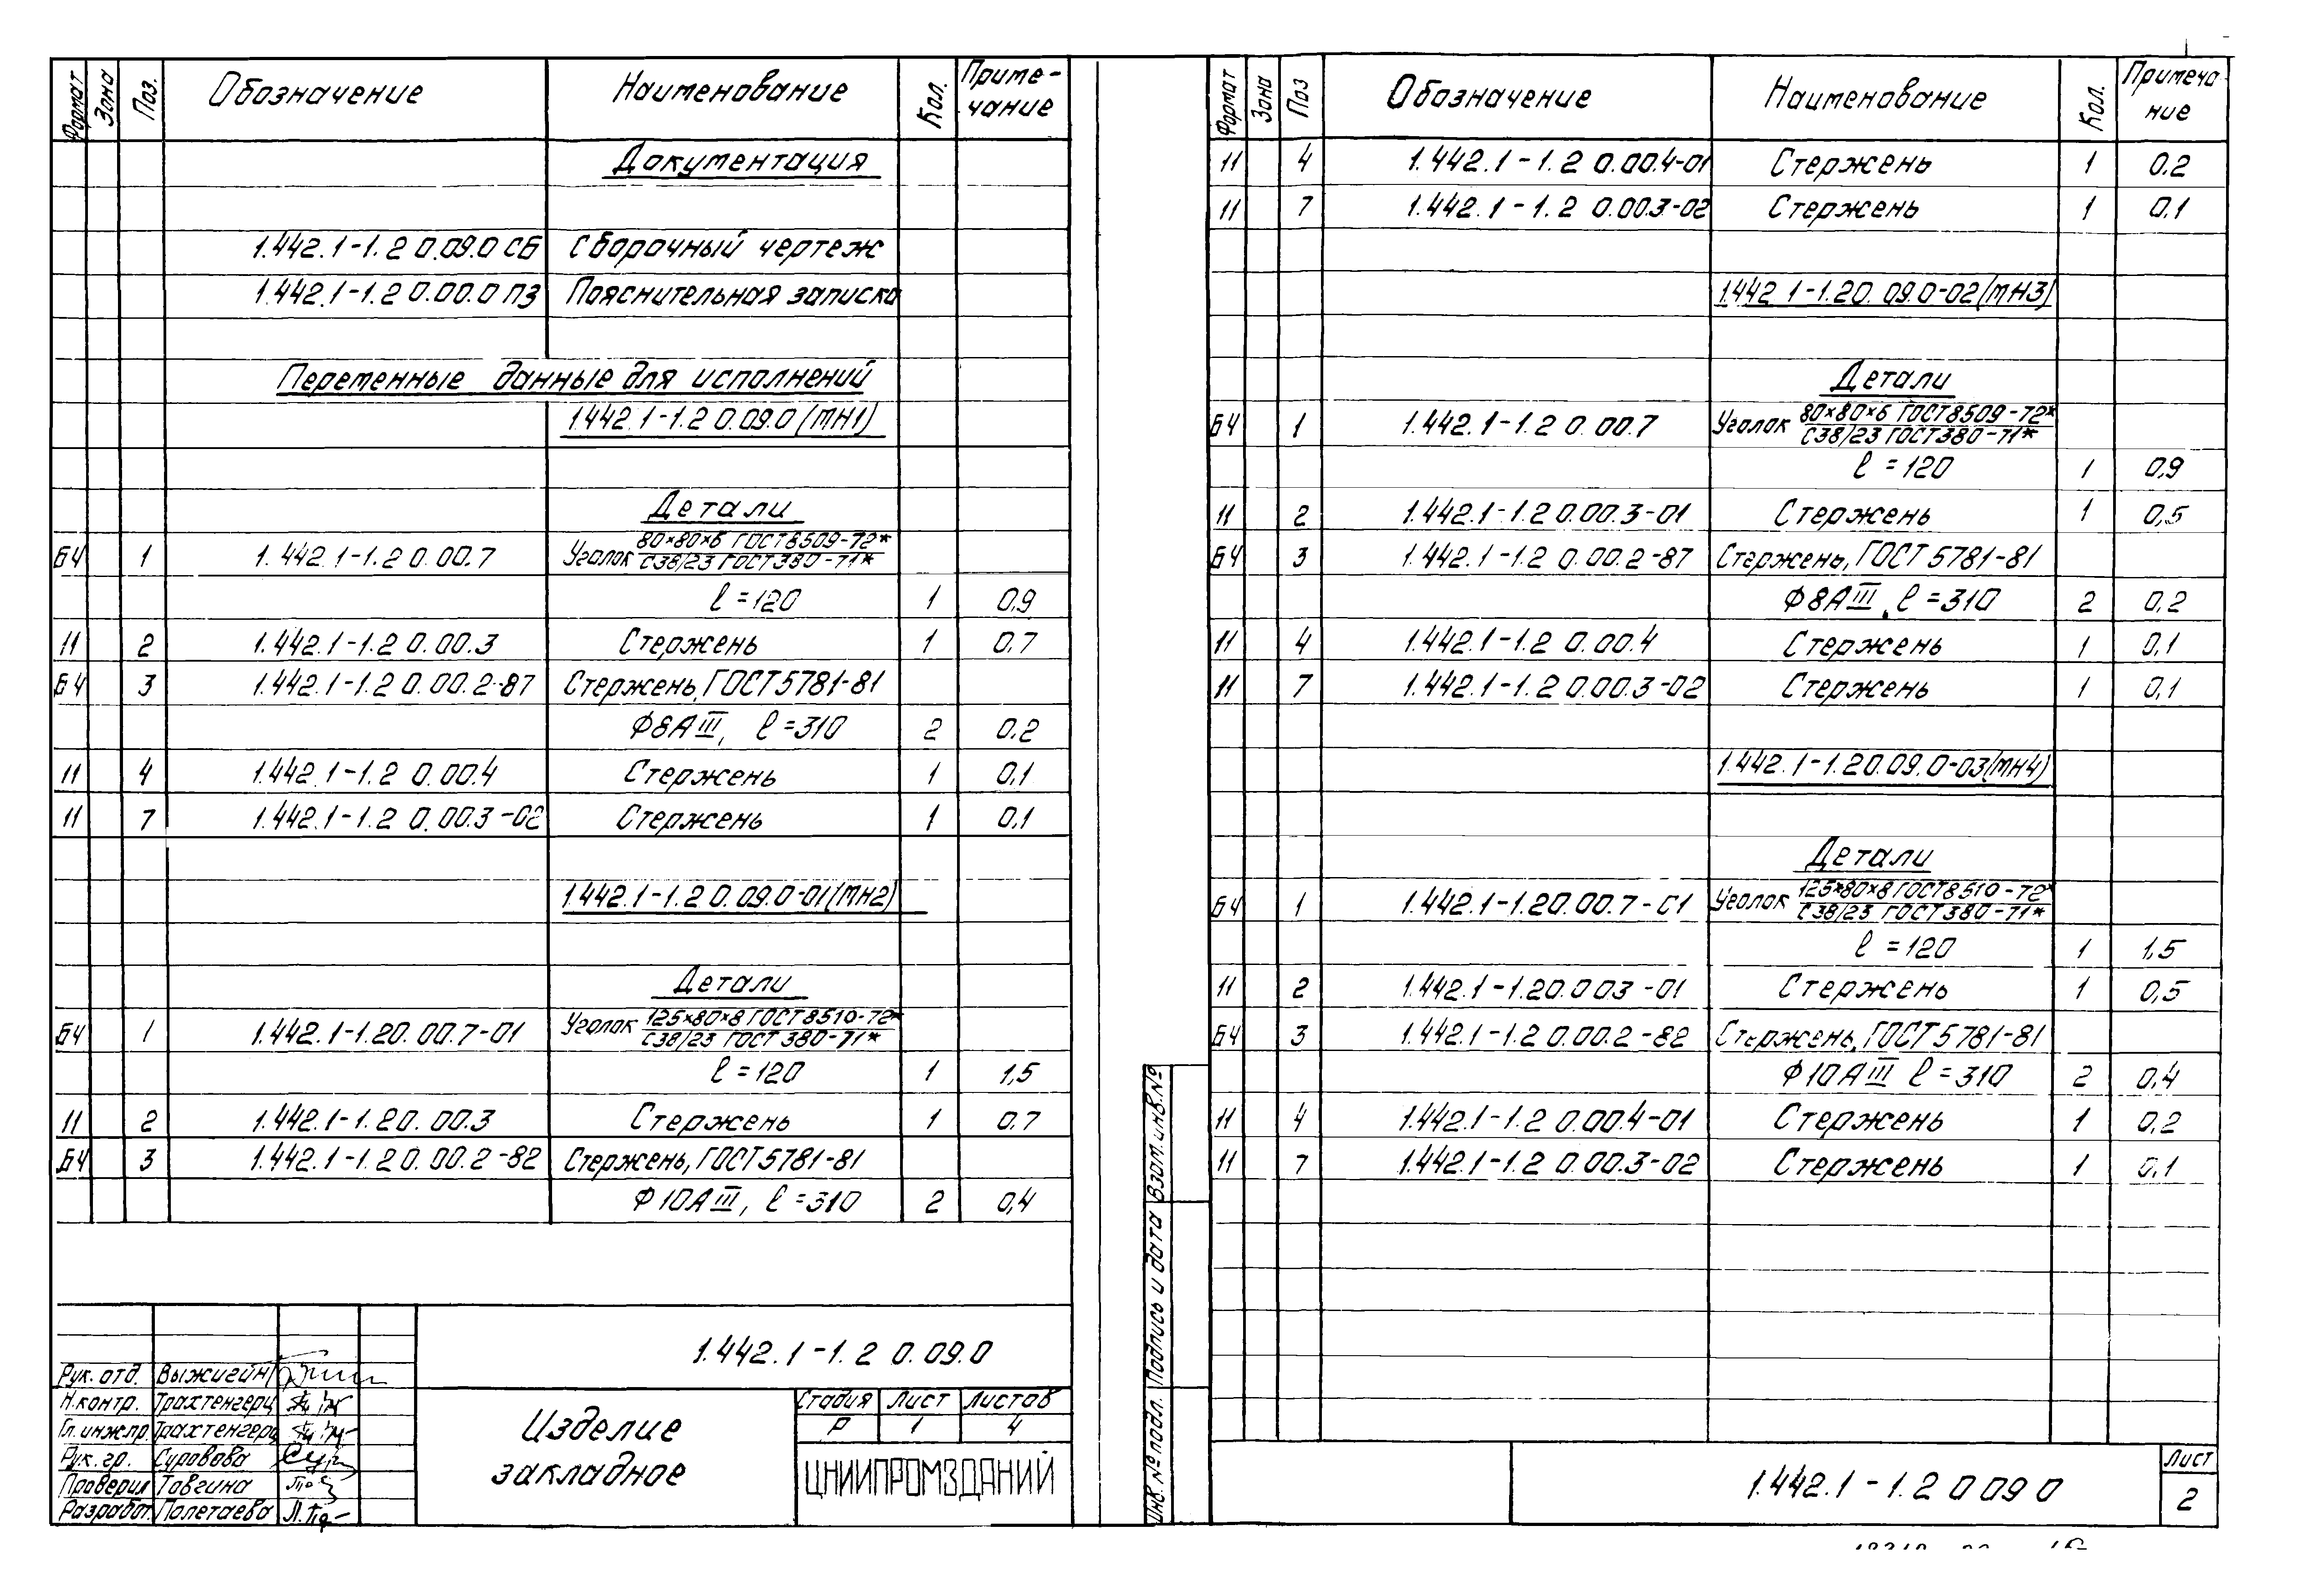 Формат Зона Поз. Обозначение Наименование Кол. Приме-чание
Документация
1.442.1-1.2 0.09.0 СБ Сборочный чертеж
1.442.1-1.2 0.00.0 ПЗ Пояснительная записка
Переменные данные для исполнений
1.442.1-1.2 0.09.0 (МН1)
Детали
БЧ 1 1.442.1-1.2 0.00.7 Уголок 80×80×6 ГОСТ 8509-72* / С38/23 ГОСТ 380-71*
ℓ=120 1 0,9
11 2 1.442.1-1.2 0.00.3 Стержень 1 0.7
БЧ 3 1.442.1-1.2 0.00.2-87 Стержень, ГОСТ 5781-81
Ф8АIII, ℓ=310 2 0.2
11 4 1.442.1-1.2 0.00.4 Стержень 1 0.1
11 7 1.442.1-1.2 0.00.3-02 Стержень 1 0.1
1.442.1-1.2 0.09.0-01(МН2)
Детали
БЧ 1 1.442.1-1.20.00.7-01 Уголок 125×80×8 ГОСТ 8510-72* / С38/23 ГОСТ 380-71*
ℓ=120 1 1,5
11 2 1.442.1-1.20.00.3 Стержень 1 0.7
БЧ 3 1.442.1-1.20.00.2-82 Стержень, ГОСТ 5781-81
Ф10АIII, ℓ=310 2 0,4
1.442.1-1.2 0.09.0
Рук. отд. Выжигин
Н.контр. Трахтенгерц
Гл.инж.пр. Трахтенгерц
Рук. гр. Суровова
Проверил Товгина
Разработ. Полетаева
Изделие
закладное
Стадия Лист Листов
Р 1 4
ЦНИИПРОМЗДАНИЙ
Формат Зона Поз Обозначение Наименование Кол. Примеча ние
11 4 1.442.1-1.2 0.00.4-01 Стержень 1 0.2
11 7 1.442.1-1.2 0.00.3-02 Стержень 1 0.1
1.442 1-1.20.09.0-02(МН3)
Детали
БЧ 1 1.442.1-1.2 0.00.7 Уголок 80×80×6 ГОСТ 8509-72* / С38/23 ГОСТ 380-71*
ℓ=120 1 0,9
11 2 1.442.1-1.2 0.00.3-01 Стержень 1 0,5
БЧ 3 1.442.1-1.2 0.00.2-87 Стержень, ГОСТ 5781-81
Ф8АIII, ℓ=310 2 0,2
11 4 1.442.1-1.2 0.00.4 Стержень 1 0.1
11 7 1.442.1-1.2 0.00.3-02 Стержень 1 0,1
1.442.1-1.20.09.0-03(МН4)
Детали
БЧ 1 1.442.1-1.20.00.7-С1 Уголок 125×80×8 ГОСТ 8510-72* / С38/23 ГОСТ 380-71*
ℓ=120 1 1,5
11 2 1.442.1-1.20.003-01 Стержень 1 0,5
БЧ 3 1.442.1-1.2 0.00.2-82 Стержень, ГОСТ 5781-81
Ф10АIII ℓ=310 2 0,4
11 4 1.442.1-1.2 0.00.4-01 Стержень 1 0,2
11 7 1.442.1-1.2 0.00.3-02 Стержень 1 0.1
Инв. № подл. Подпись и дата Взам.инв.№
1.442.1-1.2 0 09 0
Лист
2